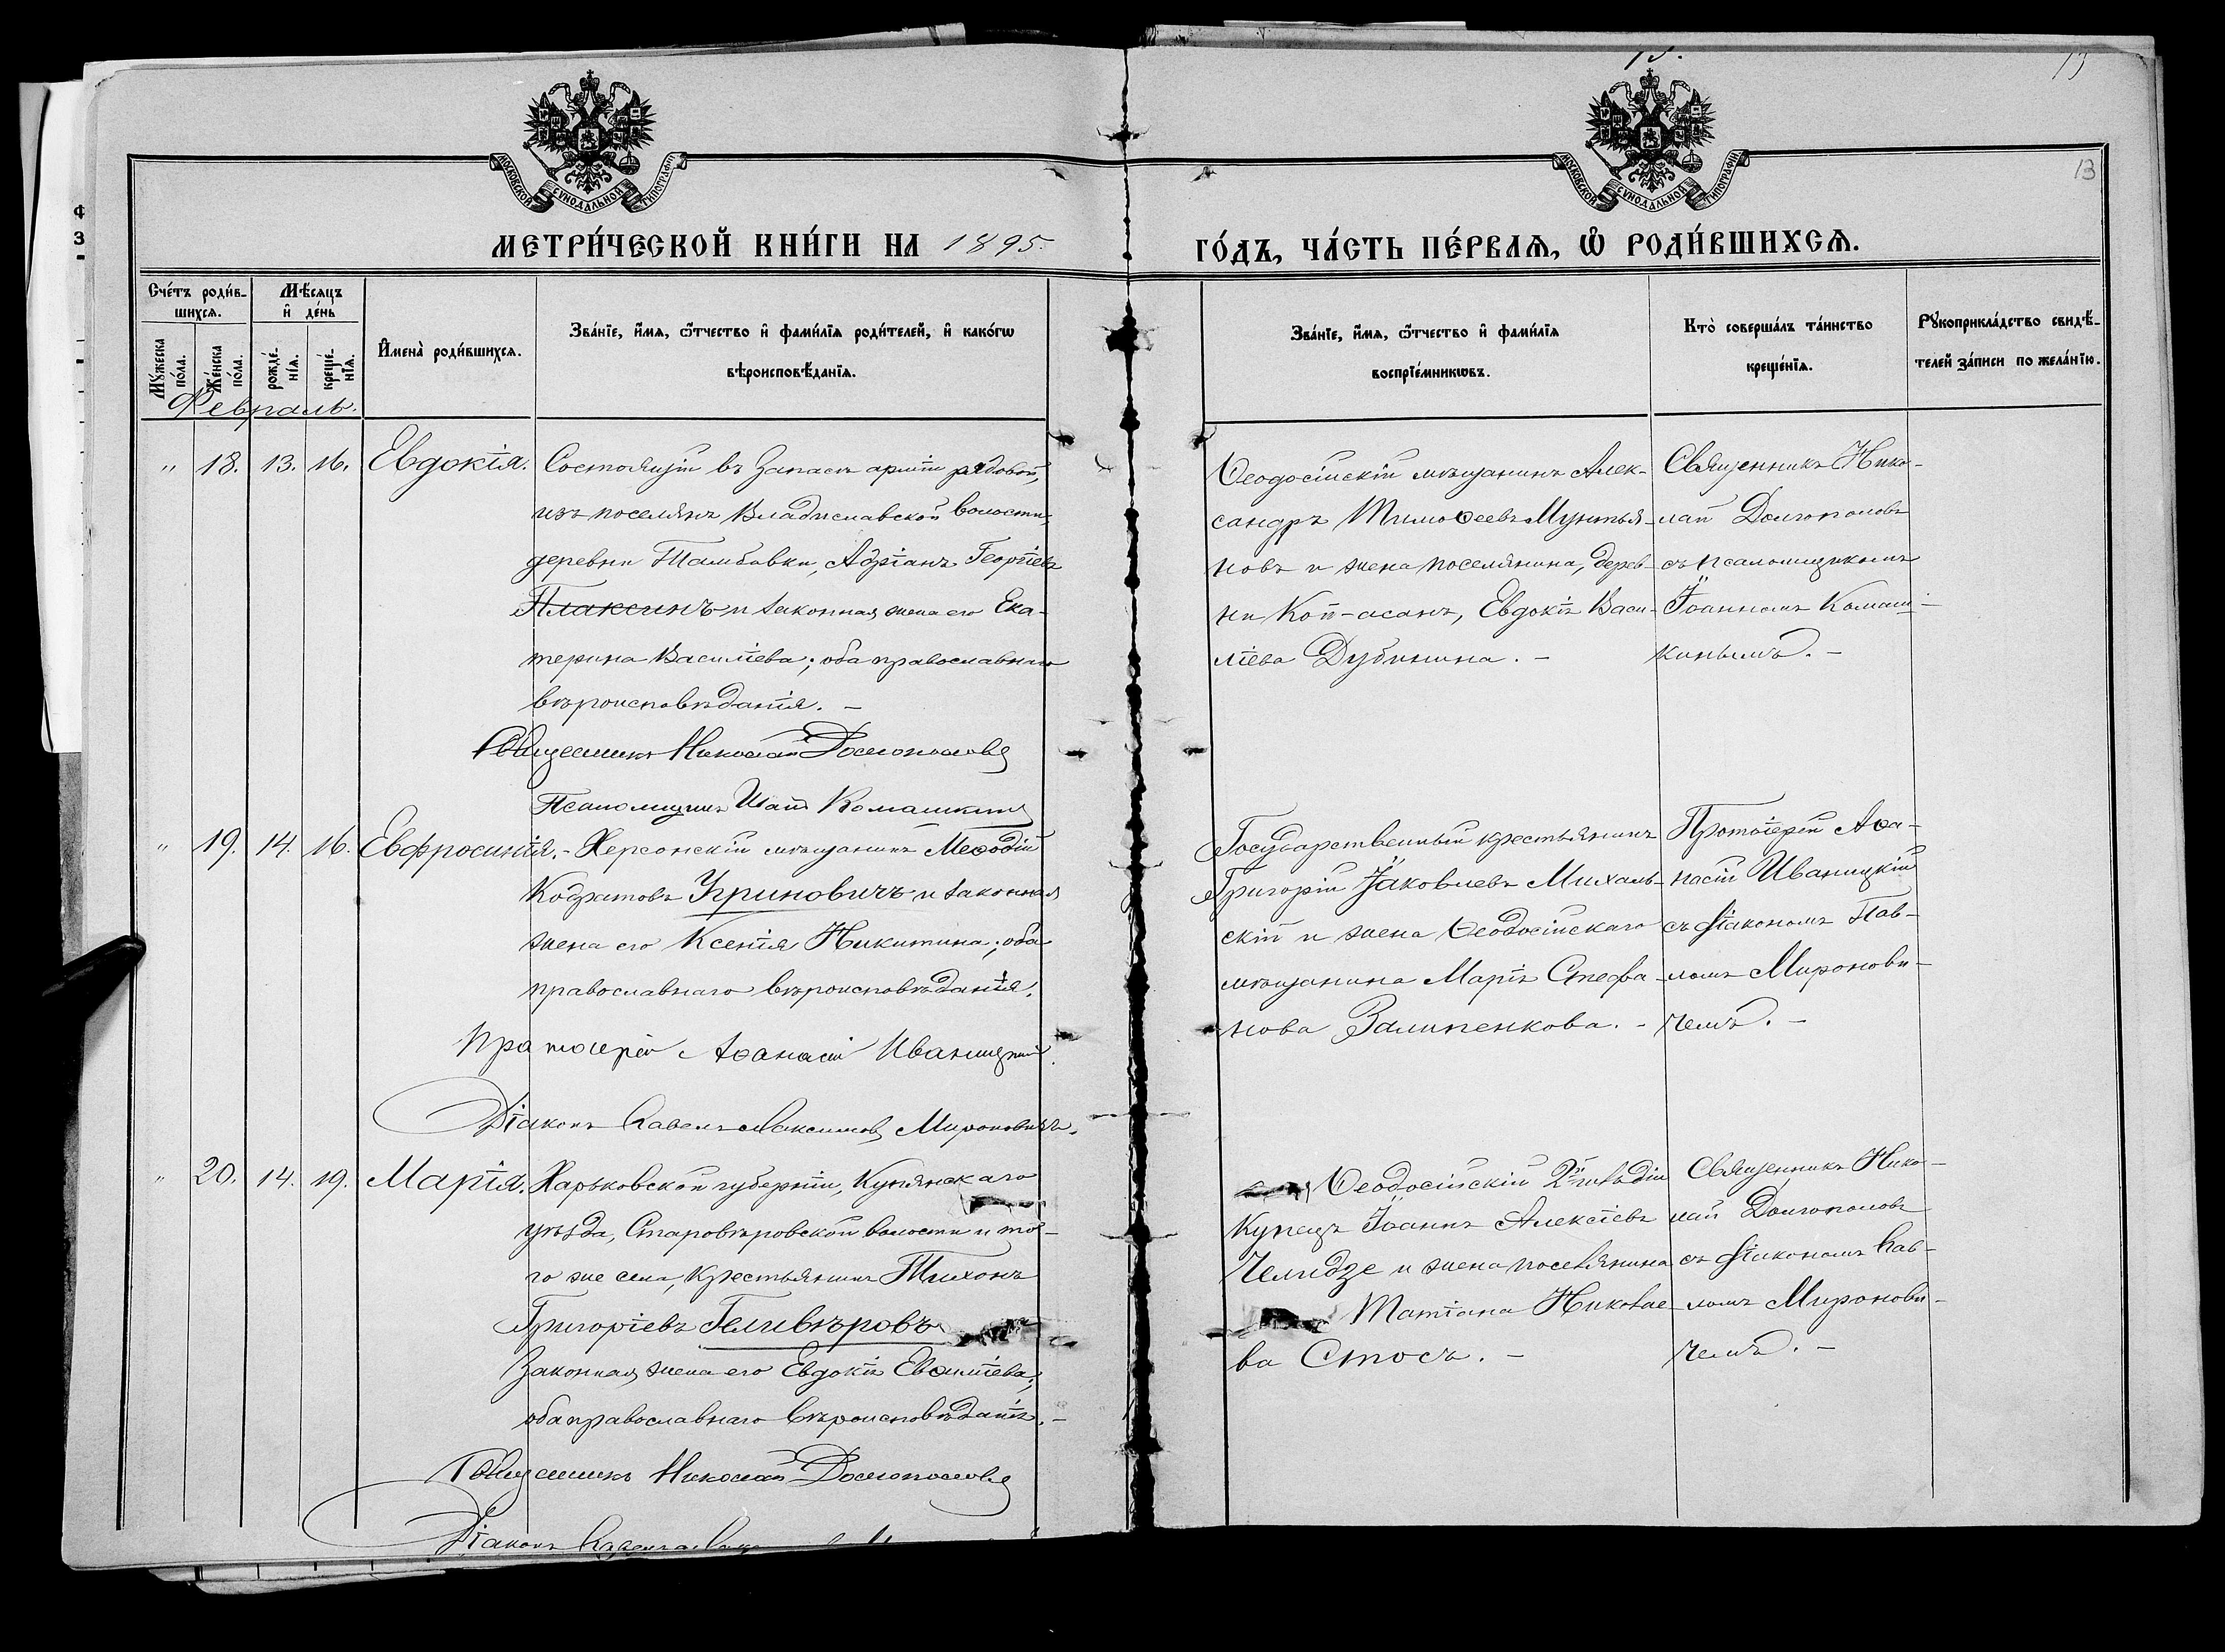 15.
13
13
МОСКОВСКОЙ СѴНОДАЛЬНОЙ ТИПОГРАФІИ
МОСКОВСКОЙ СѴНОДАЛЬНОЙ ТИПОГРАФІИ
МЕТРИ́ЧЕСКОЙ КНИ́ГИ НА 1895.
ГО́ДЪ, ЧА́СТЬ ПЕ́РВАѦ, Ѡ҆ РОДИ́ВШИХСѦ.
Сче́тъ роди́в-
шихсѧ.
Мѣ́сѧцъ
и҆ де́нь
Мꙋ́жеска
по́ла.
Же́нска
по́ла.
рожде́-
нїѧ.
креще́-
нїѧ.
И҆мена̀ роди́вшихсѧ.
Зва́нїе, и҆́мѧ, ѻ҆́тчество и҆ фами́лїѧ роди́телей, и҆ како́гѡ
вѣроисповѣ́данїѧ.
Зва́нїе, и҆́мѧ, ѻ҆́тчество и҆ фами́лїѧ
воспрїе́мникѡвъ.
Кто̀ соверша́лъ та́инство
креще́нїѧ.
Рꙋкоприкла́дство свидѣ́-
телей за́писи по жела́нїю.
Февраль.
" 18. 13. 16. Евдокія. Состоящій въ запасѣ арміи рядовой,
изъ поселянъ Владиславской волости,
деревни Тамбовки, Адріанъ Георгіевъ
Плаксинъ и законная жена его Ека-
терина Василіева; оба православнаго
вѣроисповѣданія. –
Священникъ Николай Долгополовъ
Псаломщикъ Иоан Комашкинъ
Ѳеодосійскій мѣщанинъ Алек-
сандръ Тимоѳеевъ Мунтья-
новъ и жена поселянина, дерев-
ни Коп-асанъ, Евдокія Васи-
ліева Дубинина. –
Священникъ Нико-
лай Долгополовъ
съ псаломщикомъ
Іоанномъ Комаш-
кинымъ. –
" 19. 14. 16. Евфросинія. – Херсонскій мѣщанинъ Меѳодій
Кодратовъ Угриновичъ и законная
жена его Ксенія Никитина; оба
православнаго вѣроисповѣданія.
Протоіерей Аѳанасій Иваницкій.
Діаконъ Павелъ Максимовъ Мироновичъ.
Государственный крестьянинъ
Григорій Іаковлевъ Михаль-
скій и жена Ѳеодосійскаго
мѣщанина Марія Стефа-
нова Залипенкова. –
Протоіерей Аѳа-
насій Иваницкій
съ діакономъ Пав-
ломъ Миронови-
чемъ. –
" 20. 14. 19. Марія. Харьковской губерніи, Купянскаго
уѣзда, Старовѣровской волости и то-
го же села, крестьянинъ Тихонъ
Григоріевъ Геливѣровъ
законная жена его Евдокія Евѳиміева;
оба православнаго вѣроисповѣданія. –
Священникъ Николай Долгополовъ
Діаконъ
Ѳеодосійскій 2й гильдіи
купецъ Іоаннъ Алексіевъ
Челидзе и жена поселянина
Татіана Николае-
ва Стосъ. –
Священникъ Нико-
лай Долгополовъ
съ діакономъ Пав-
ломъ Миронови-
чемъ. –